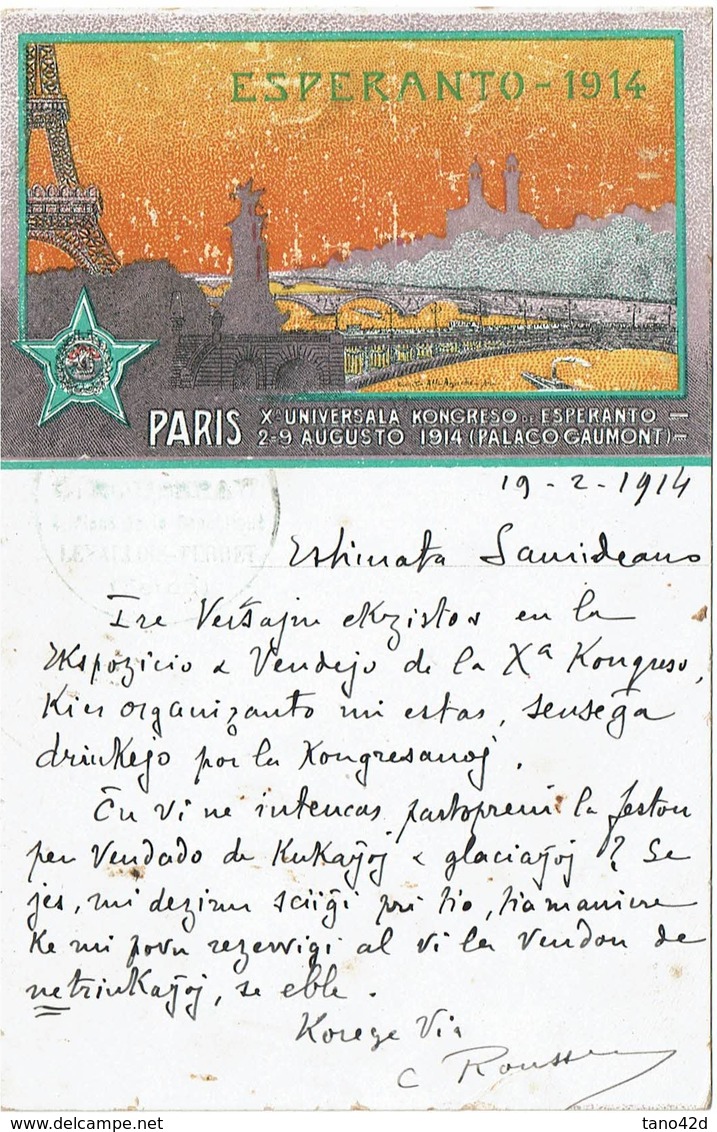 ESPERANTO - 1914
PARIS
Xª UNIVERSALA KONGRESO DE ESPERANTO —
2-9 AUGUSTO 1914 (PALACO GAUMONT) —
19-2-1914
Estimata Samideano
Tre Verŝajne ekzistos en la
Ekspozicio & Vendejo de la Xª Kongreso,
Kies organizanto mi estas, senseĝa
drinkejo por la Kongresanoj.
Ĉu vi ne intencas partopreni la feston
per Vendado de Kukaĵoj & glaciaĵoj? Se
jes, mi dezirus sciiĝi pri tio, tiamaniere
ke mi povu rezervigi al vi la vendon de
netrinkaĵoj, se eble.
Korege Via
C Rousseau
tano42d